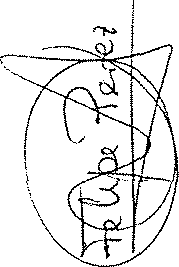 Felipe Perez